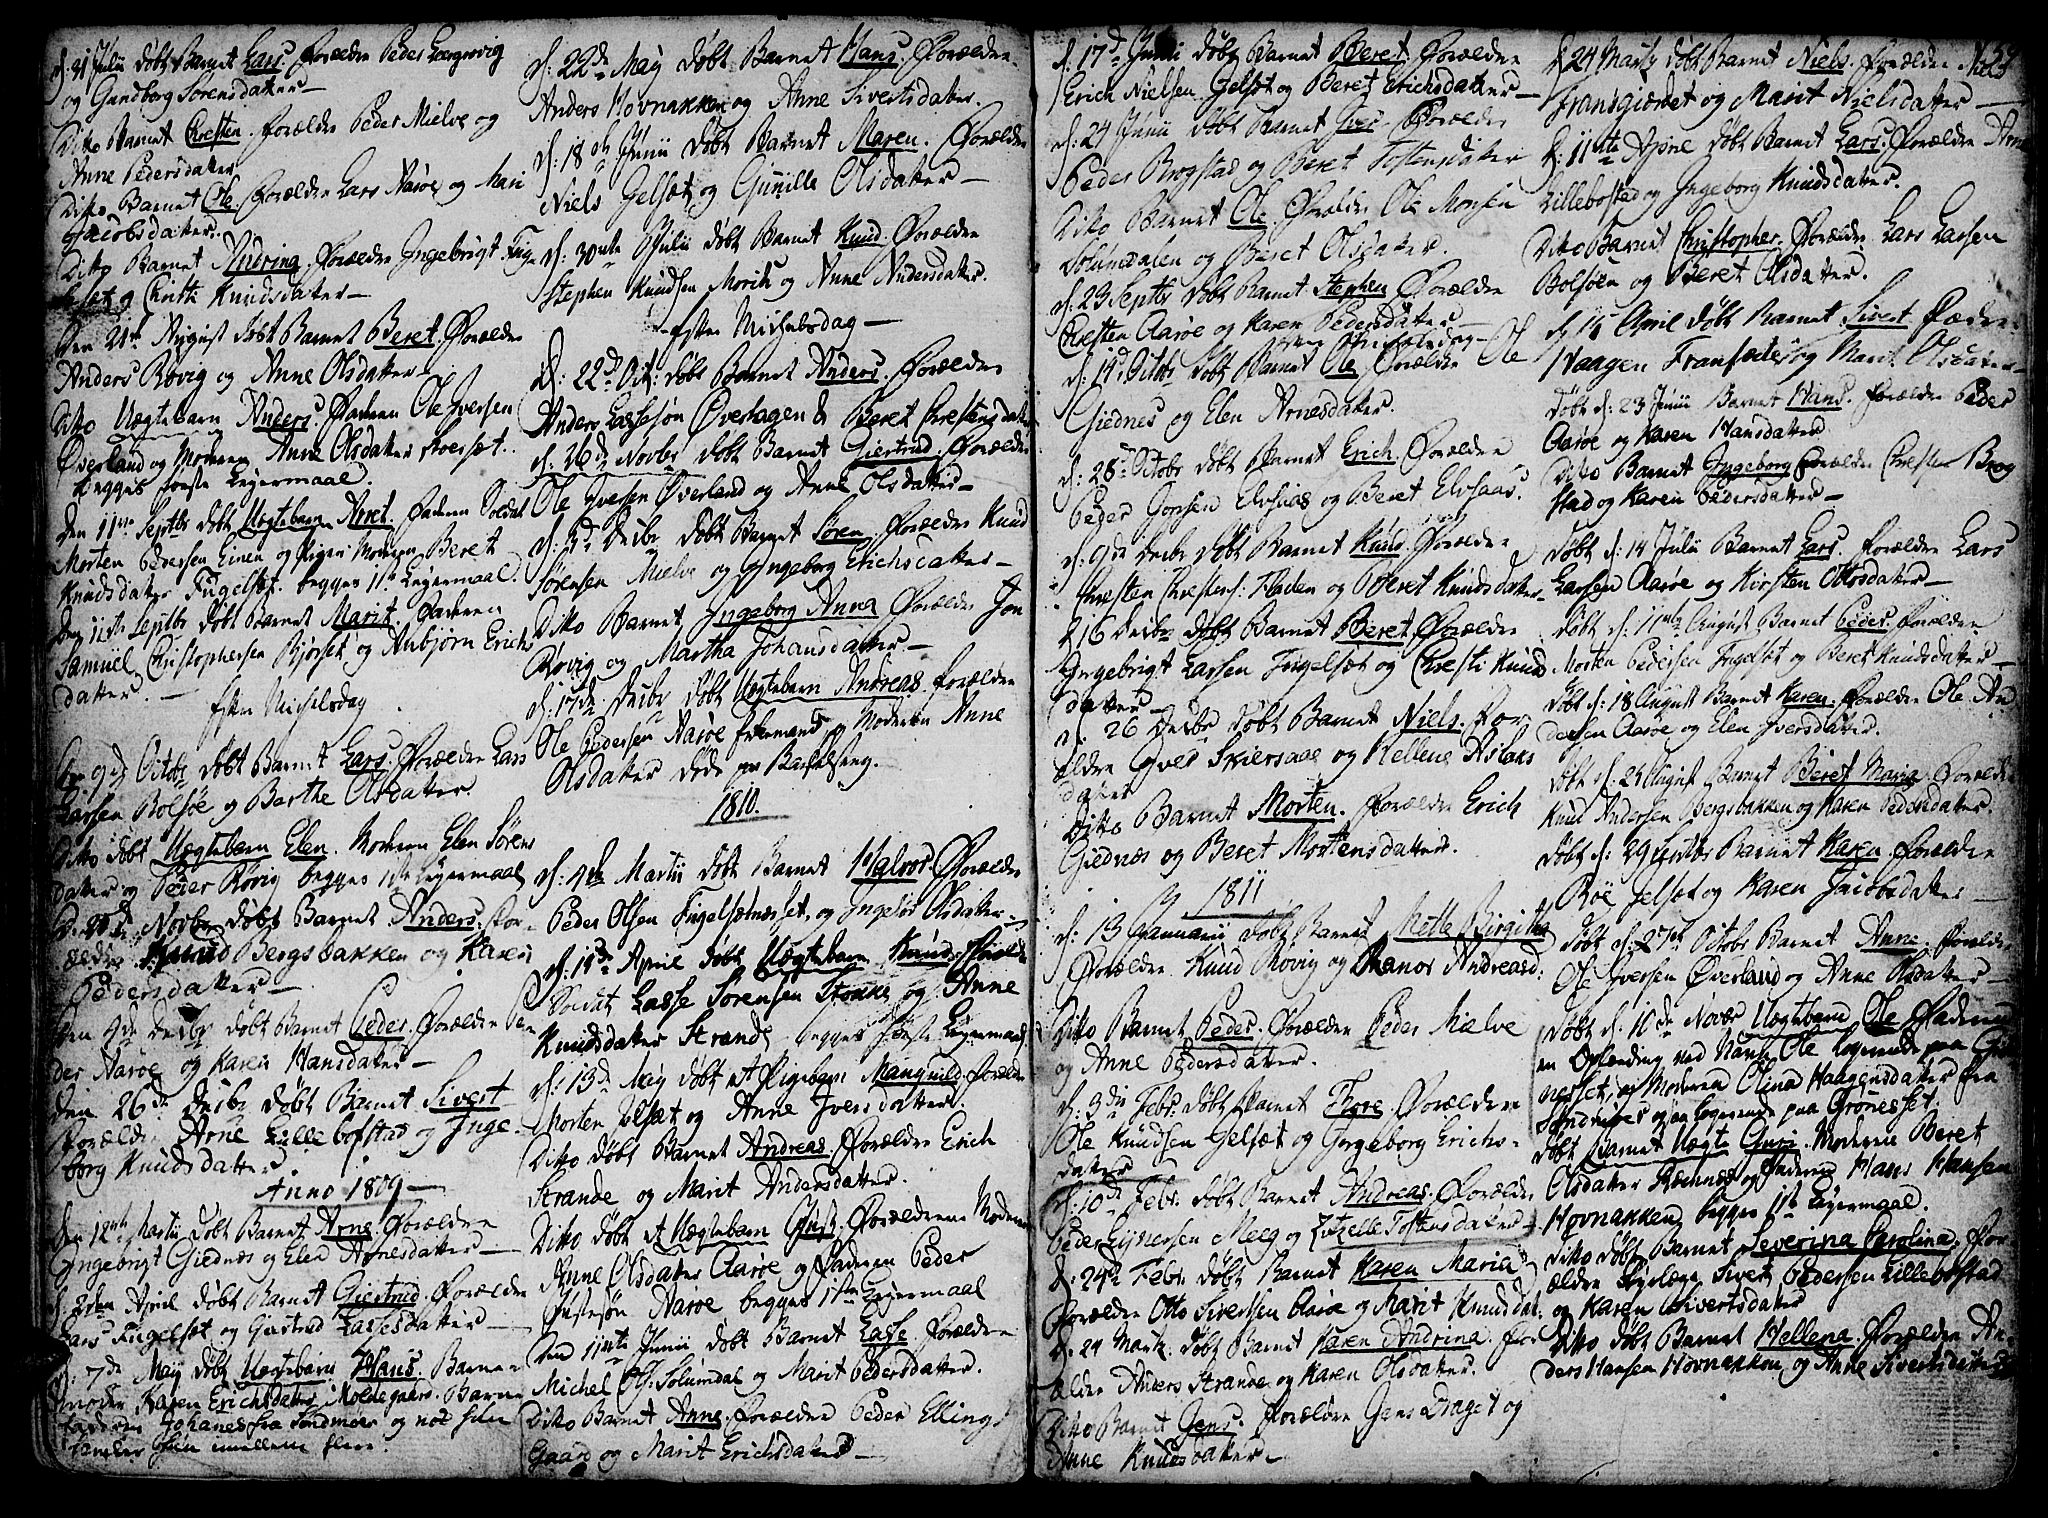 d: 31 Julii døbt Barnet Lars. Forældre Peder
og Gundborg Sørensdatter
Ditto Barnet Christen. Forældre Peder Mielve og
Anne Pedersdatter
Ditto Barnet Ole. Forældre Lars Aarøe og Mari
Jacobsdatter.
Ditto Barnet Andrina. Forældre Ingebrigt Fug-
elsæt og Christi Knudsdatter
Den 21de August døbt Barnet Beret. Forældre
Anders Røvig og Anne Olsdatter
Ditto Uægtebarn Anders. Faderen Ole Iversen
Øverland og Moderen Anne Olsdatter
begges første Leyermaal.
Den 11te Septbr døbt Uægtebarn Beret. Faderen Soldat
Morten Pedersen Einen og Pigen Moderen Beret
Knudsdatter Fugelsæt. begges 1ste Leyermaal.
Den 11te Septbr døbt Barnet Marit. Faderen
Samuel Christophersen Bjørset og Anbjørn Erichs
datter.
Efter Michelsdag
Den 9de Octobr døbt Barnet Lars. Forældre Lars
Larsen Bolsøe og Berthe Olsdatter.
Ditto døbt Uægtebarn Elen. Moderen Elen Sørens
datter og Peder Røvig begges 1ste Leyermaal
Novbr døbt Barnet Anders. For-
ældre Knud Bergsbakken og Karen
Pedersdatter
Den 4de Decbr døbt Barnet Peder. Forældre Pe-
der Aarøe og Karen Hansdatter
Den 26de Decbr døbt Barnet Sivert
Forældre Arne Lillebostad og Inge-
borg Knudsdatter.
Anno 1809
d: 12te Martii døbt Barnet Arne. Forældre
Ingebrigt Giednæs og Elen Arnesdatter
April døbt Barnet Giertrud. Forældre
Lars Fugelsæt og Giertrud Lassesdatter
d: 7de May døbt Uægtebarn Hans. Barne-
moder Karen Erichsdatter i Moldegaard. Barne
faderen Johanes fra Søndmør og

d: 22de May døbt Barnet Hans. Forældre
Anders Hovnakken og Anne Sivertsdatter.
d: 18de Junii døbt Barnet Maren. Forældre
Niels Gelsæt og Gunille Olsdatter
d: 30te Julii døbt Barnet Knud. Forældre
Stephen Knudsen Moriti og Anne Andersdatter.
Efter Michelsdag
d: 22de Oct: døbt Barnet Anders. Forældre
Anders Lassesøn Øverhagen & Beret Christensdatter
d: 26de Novbr døbt Barnet Giertrud. Forældre
Ole Iversen Øverland og Anne Olsdatter
d: 3de Decbr døbt Barnet Søren. Forældre Knud
Sørensen Mielve og Ingeborg Erichsdatter
Ditto Barnet Ingeborg Anna Forældre Jon
Røvig og Martha Johansdatter
d: 17de Decbr døbt Uægtebarn Andreas. Forældre
Ole Pedersen Aarøe og Moderen Anne
Olsdatter døde paa Barselseng.
1810.
d: 4de Martii døbt Barnet Halvor. Forældre
Peder Olsen Fugelsætnesset, og Ingebør Olsdatter
April døbt Uægtebarn Knud. Forældre
Soldat Lasse Sørensen Stokke og Anne
Knudsdatter Strande begges første Leyermaal
d: 13de May døbt et Pigebarn Manguild. Forældre
Morten og Anne Iversdatter.
Ditto døbt Barnet Andreas. Forældre Erich
Strande og Marit Andersdatter.
Ditto døbt et Uægtebarn. Forældrene Moderen
Anne Olsdatter Aarøe og Faderen Peder
Aarøe begges 1ste Leyermaal
Den 11te Junii døbt Barnet Lasse. Forældre
Michel Ols: Solumdal og Marit Pedersdatter.
Ditto Barnet Anne. Forældre Peder Ellings
Gaard og Marit Erichsdatter

d: 17de Junii døbt Barnet Beret. Forældre
Erich Nielsen Gelsæt og Beret Erichsdatter
d: 24 Junii døbt Barnet Iver. Forældre
Peder Brogstad og Beret Tostensdatter
Ditto Barnet Ole. Forældre Ole Monsen
Solumdalen og Beret Olsdatter.
d: 23 Septbr døbt Barnet Stephen Forældre
Christen Aarøe og Karen Pedersdatter
Efter Michelsdag
d: 14de Octobr døbt Barnet Ole Forældre Ole
Giednes og Elen Arnesdatter.
d: 28de Octobr døbt Barnet Erich. Forældre
Peder Jonsen Elvsaas og Beret Elvsaas.
d: 9de Decbr døbt Barnet Knud. Forældre
Christen Christens: Fladen og Beret Knudsdatter
d: 16 Decbr døbt Barnet Beret. Forældre
Ingebrigt Larsen Fugelsæt og Christi Knuds
datter
d: 26 Decbr døbt Barnet Niels. For-
ældre Iver Skiersaae og Hellene Aslaks
datter
Ditto Barnet Morten. Forældre Erich
Giednæs og Beret Mortensdatter.
1811
d: 13 Januarii døbt Barnet Mette Birgitha
Forældre Knud Røvig og Andreasd:
Ditto Barnet Peder. Forældre Peder Mielve
og Anne Pedersdatter.
d: 3die Febr. døbt Barnet Thore. Forældre
Ole Knudsen Gelsæt og Ingeborg Erichs-
datter
d: 10de Febr. døbt Barnet Andreas. Forældre
Peder Meeg og Tostensdatter
d: 24de Febr. døbt Barnet Karen Maria
Forældre Otto Sivertsen Aarøe og Marit Knudsdat:
d. 24 Martz. døbt Barnet Karen Andrina. For
ældre Anders Strande og Karen Olsdatter.
Ditto Barnet Jens. Forældre Jens Draget og
Anne Knudsdatter

d 24 Martz døbt Barnet Niels. Forældre Niels
Fransgierdet og Marit Nielsdatter
d: 11te Aprile døbt Barnet Lars. Forældre Arne
Lillebostad og Ingeborg Knudsdatter.
Ditto Barnet Christopher. Forældre Lars Larsen
Bolsøen og Beret Olsdatter.
April døbt Barnet Sivert Forældre
Haagen og Marit Olsdatter
Døbt d: 23 Junii Barnet Hans. Forældre Peder
Aarøe og Karen Hansdatter
Ditto Barnet Ingeborg Forældre Christen Brog
stad og Karen Pedersdatter
Døbt d: 14 Julii Barnet Lars. Forældre Lars
Larsen Aarøe og Kirsten Olsdatter
Døbt d: 11te August Barnet Peder. Forældre
Morten Pedersen Fugelsæt og Beret Knudsdatter
Døbt d: 18 August Barnet Karen. Forældre Ole An
dersen Aarøe og Elen Iversdatter.
Døbt d: 25 August Barnet Beret Maria. Forældre
Knud Andersen Bergsbakken og Karen Pedersdatter.
Døbt d: 29 Septbr Barnet Karen. Forældre
Roe Gelsæt og Karen Jacobsdatter
Døbt d: 27de Octobr Barnet Anne. Forældre
Ole Iversen Øverland og Anne Olsdatter
Døbt d. 10de Novbr Uægtebarn Ole Faderen
en Oplending ved Navn Ole Logerende paa Grø
nesset, og Moderen Olina Haagensdatter fra
Sondmøer og Logerende paa Grønesset.
Døbt Barnet Uægte Guri. Moderen Beret
Olsdatter Røknæs og Faderen Hans Hansen
Hovnakken, begges 1ste Leyermaal.
Ditto døbt Barnet Severina Carolina. For-
ældre Sivert Pedersen Lillebostad
og Karen Sivertsdatter
Ditto døbt Barnet Hellena. Forældre An-
ders Hansen Hovnakken og Anne Sivertsdatter